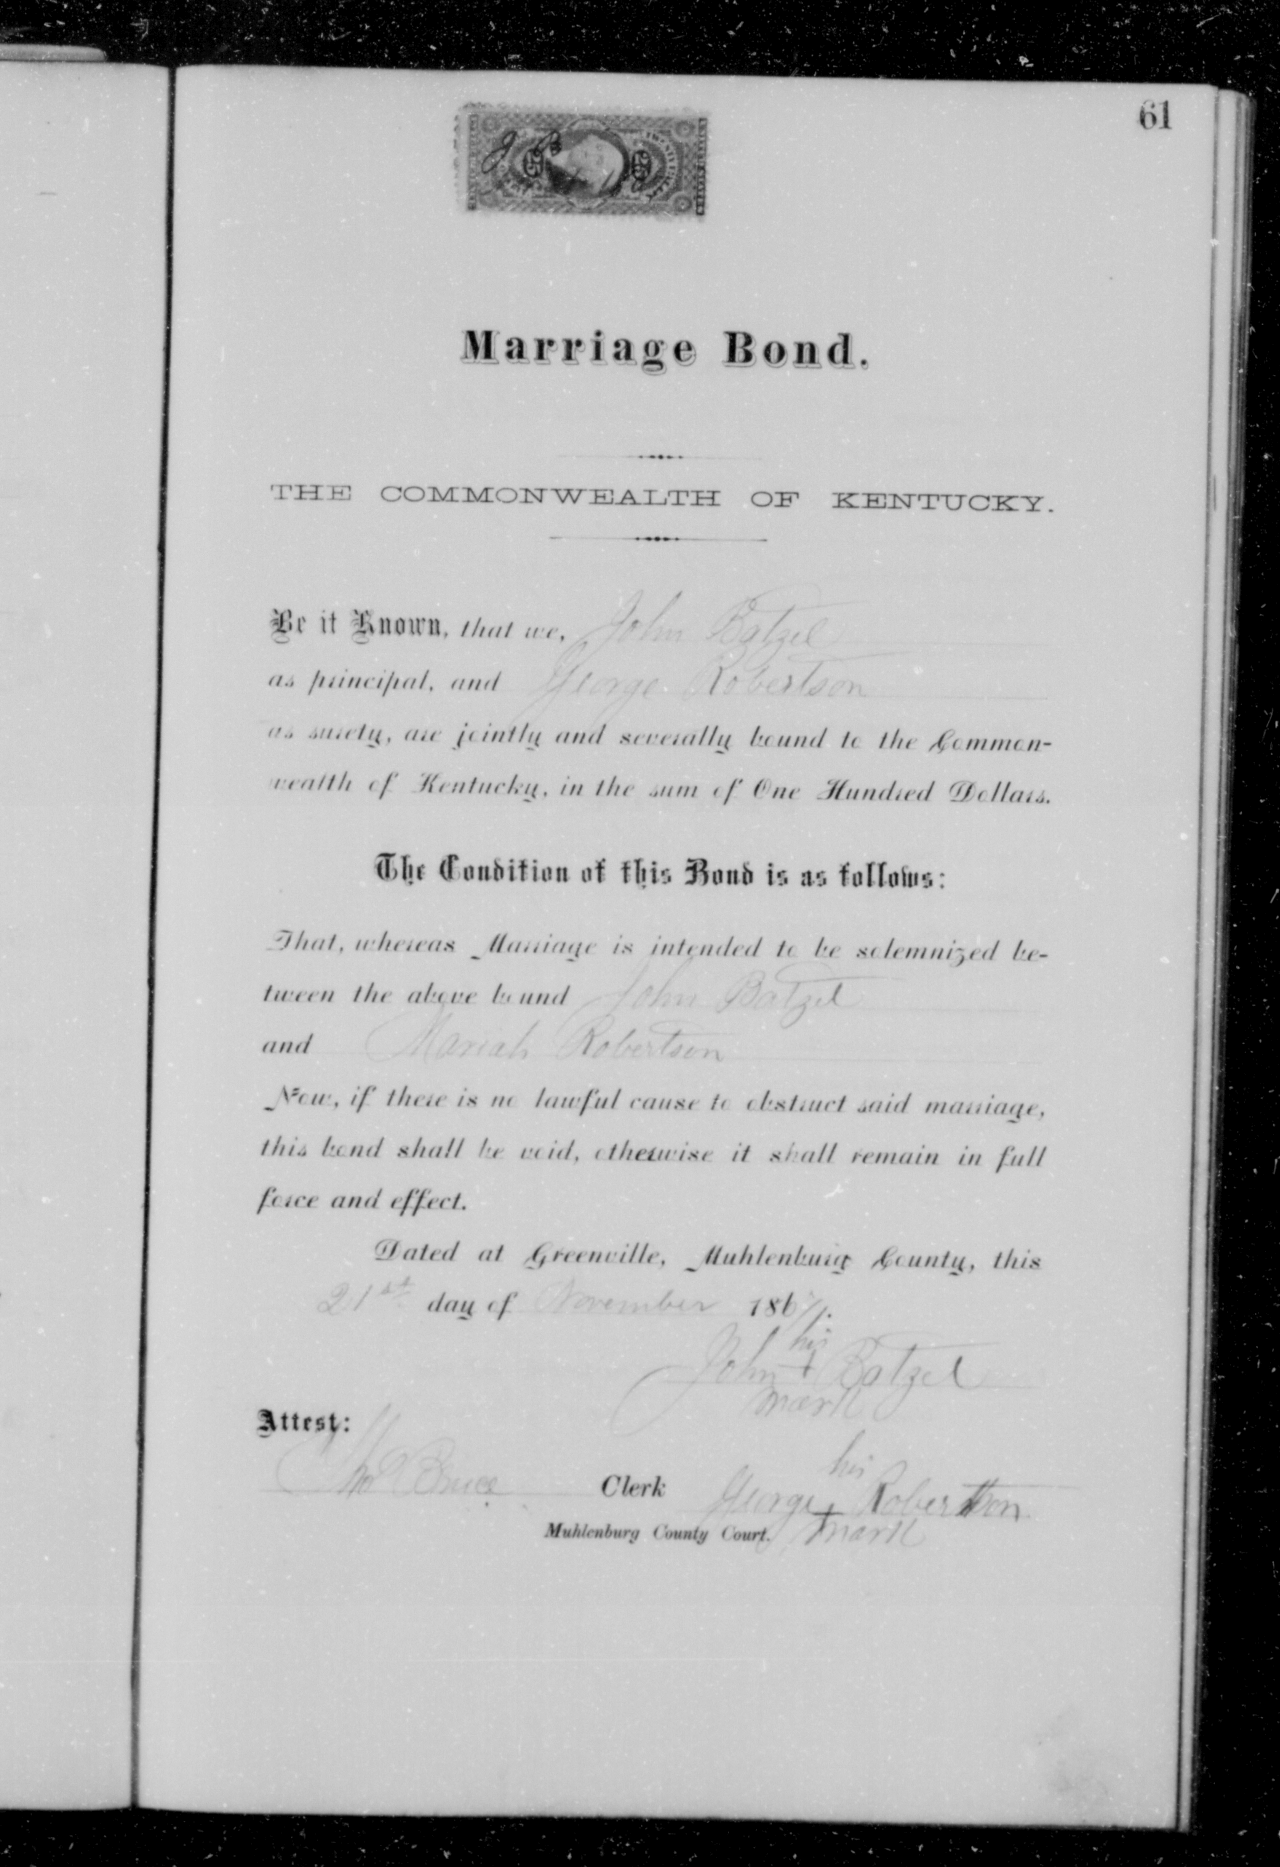 61
Marriage Bond.
THE COMMONWEALTH OF KENTUCKY.
Be it Known, that we, John Batzel
as principal, and George Robertson
as surety, are jointly and severally bound to the Common-
wealth of Kentucky, in the sum of One Hundred Dollars.
The Condition of this Bond is as follows:
That, whereas Marriage is intended to be solemnized be-
tween the above bound John Batzel
and Mariah Robertson
Now, if there is no lawful cause to obstruct said marriage,
this bond shall be void, otherwise it shall remain in full
force and effect.
Dated at Greenville, Muhlenburg County, this
21st day of November 186
his
John + Batzel
mark
Attest:
Bruce Clerk
Muhlenburg County Court.
his
George + Robertson
mark